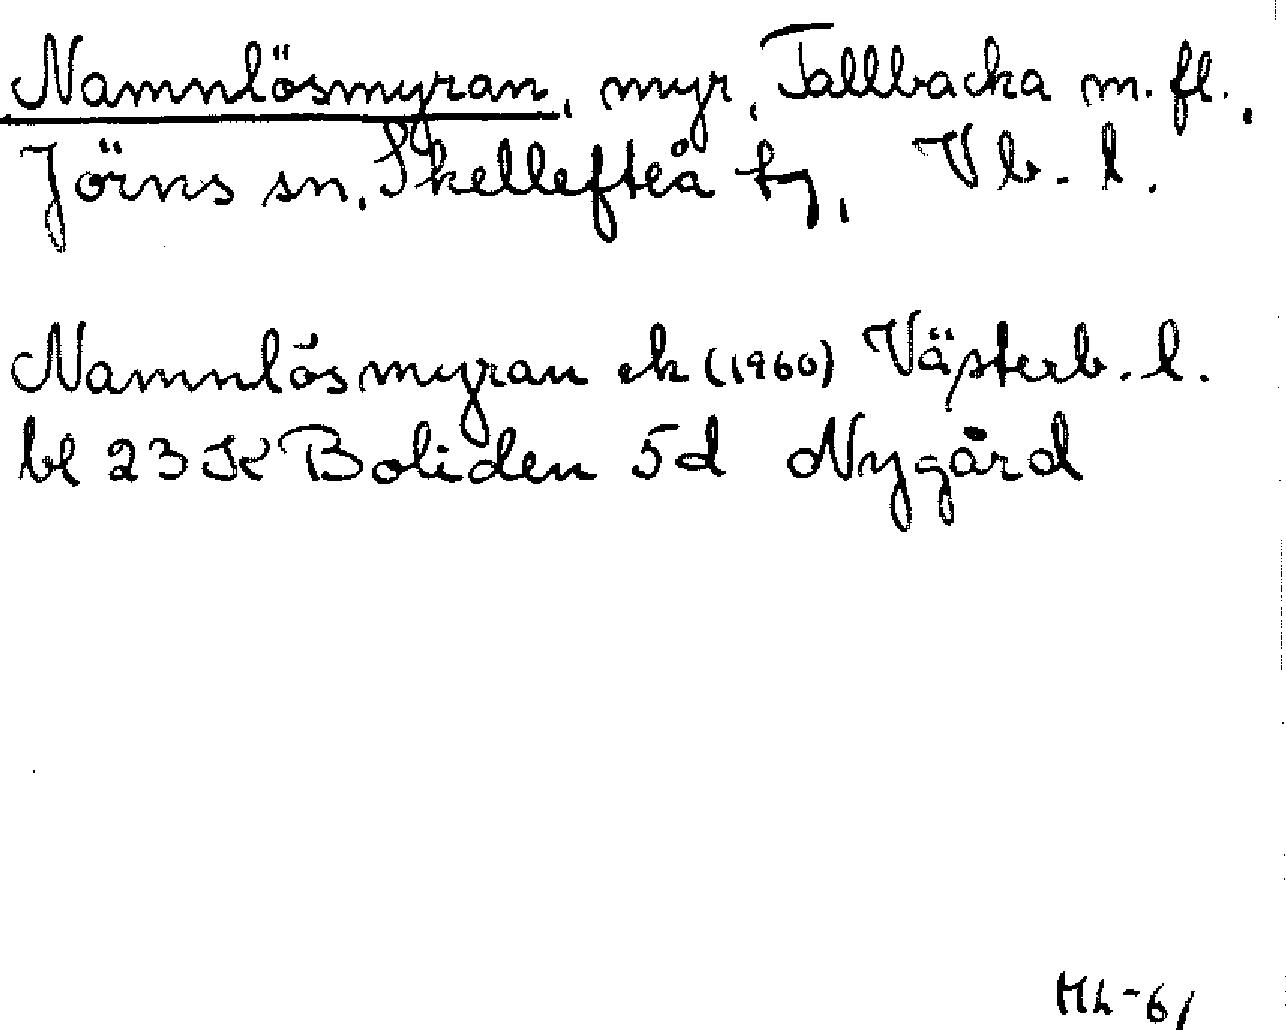 Namnlösmyran, myr, Tallbacka m. fl.,
Jörns sn, Skellefteå tg, Vb. l.
Namnlösmyran ek (1960) Västerb. l.
bl 23 K Boliden 5d Nygård
ML-61